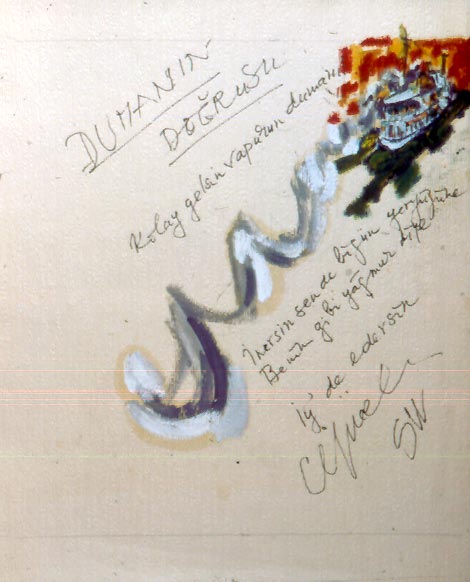 DUMANIN
DOĞRUSU
Kolay gelsin vapurun dumanı
İnersin sende bigün yeryüzüne
Benim gibi yağmur diye
İyi de edersin